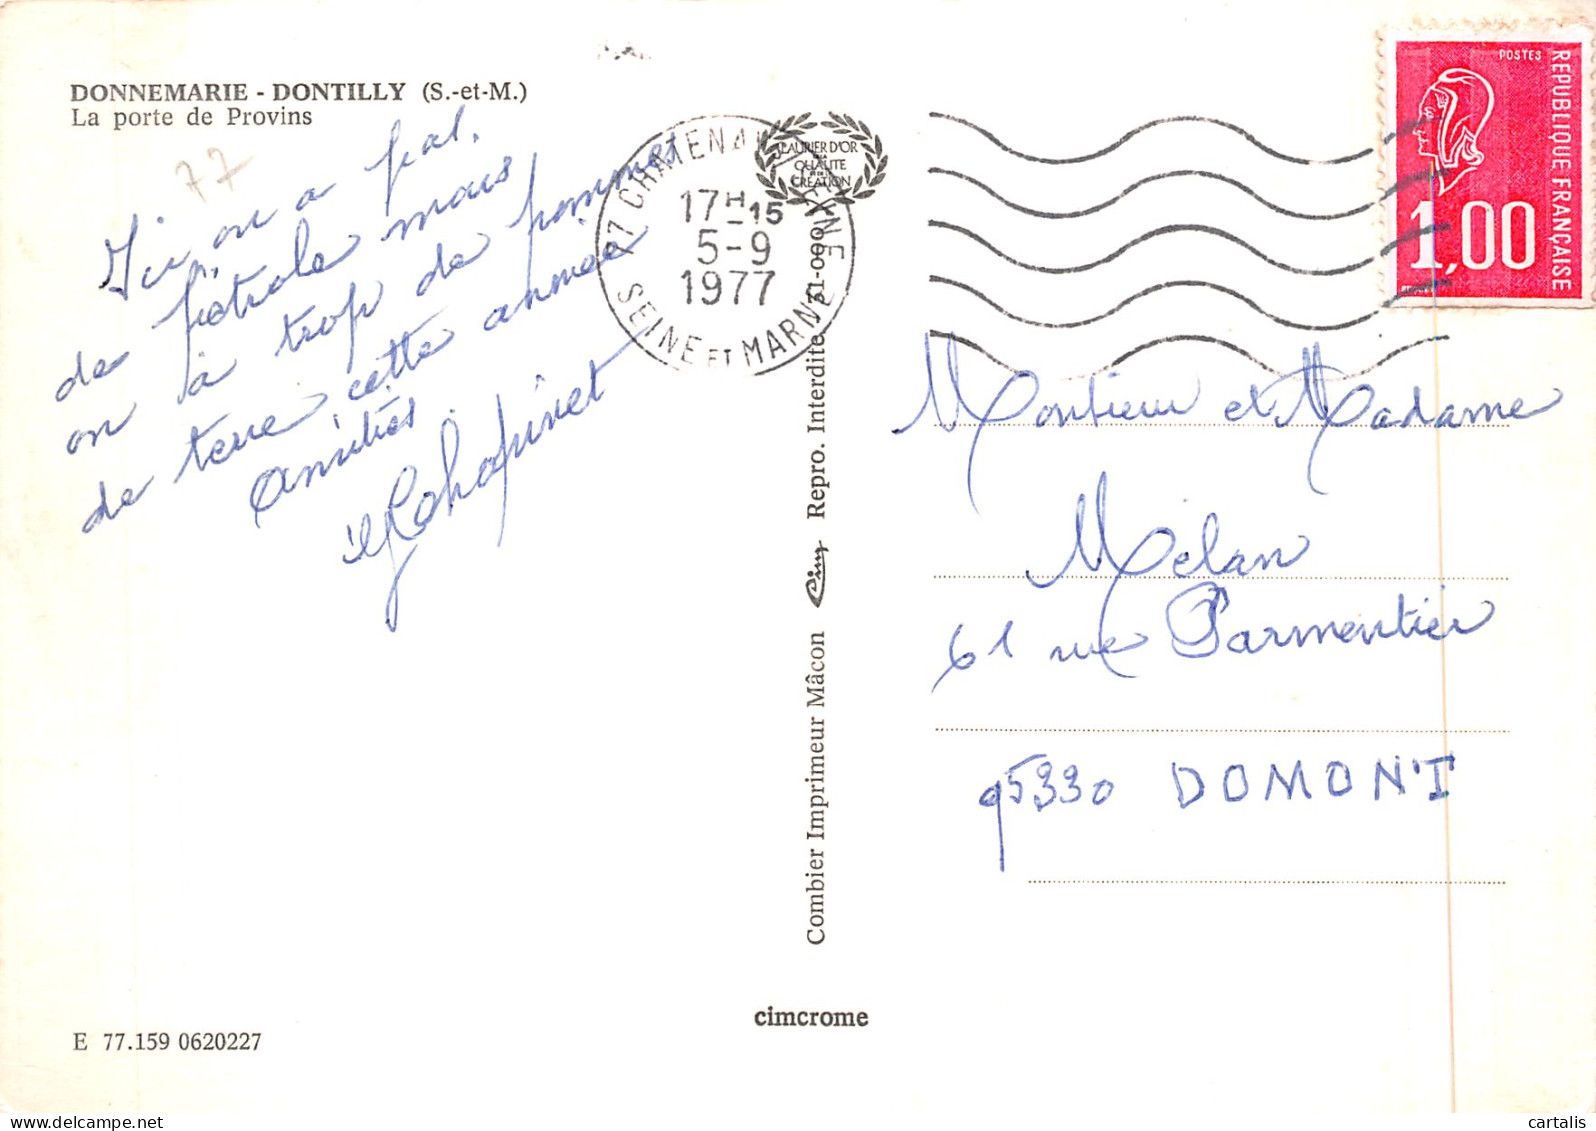 DONNEMARIE - DONTILLY (S.-et-M.)
La porte de Provins
77
Ici, on a pas
de pétrole mais
on à trop de pommes
de terre cette année
Amitiés
77 CHATENAY
17H-15
5-9
1977
SEINE ET MARNE
LAURIER D'OR
DE LA
QUALITE
CREATION
POSTES
REPUBLIQUE FRANÇAISE
1,00
Combier Imprimeur Mâcon Cim Repro. Interdite 71-000
Monsieur et Madame
Mélan
61 rue Parmentier
95330 DOMONT
cimcrome
E 77.159 0620227
cartalis
delcampe.net